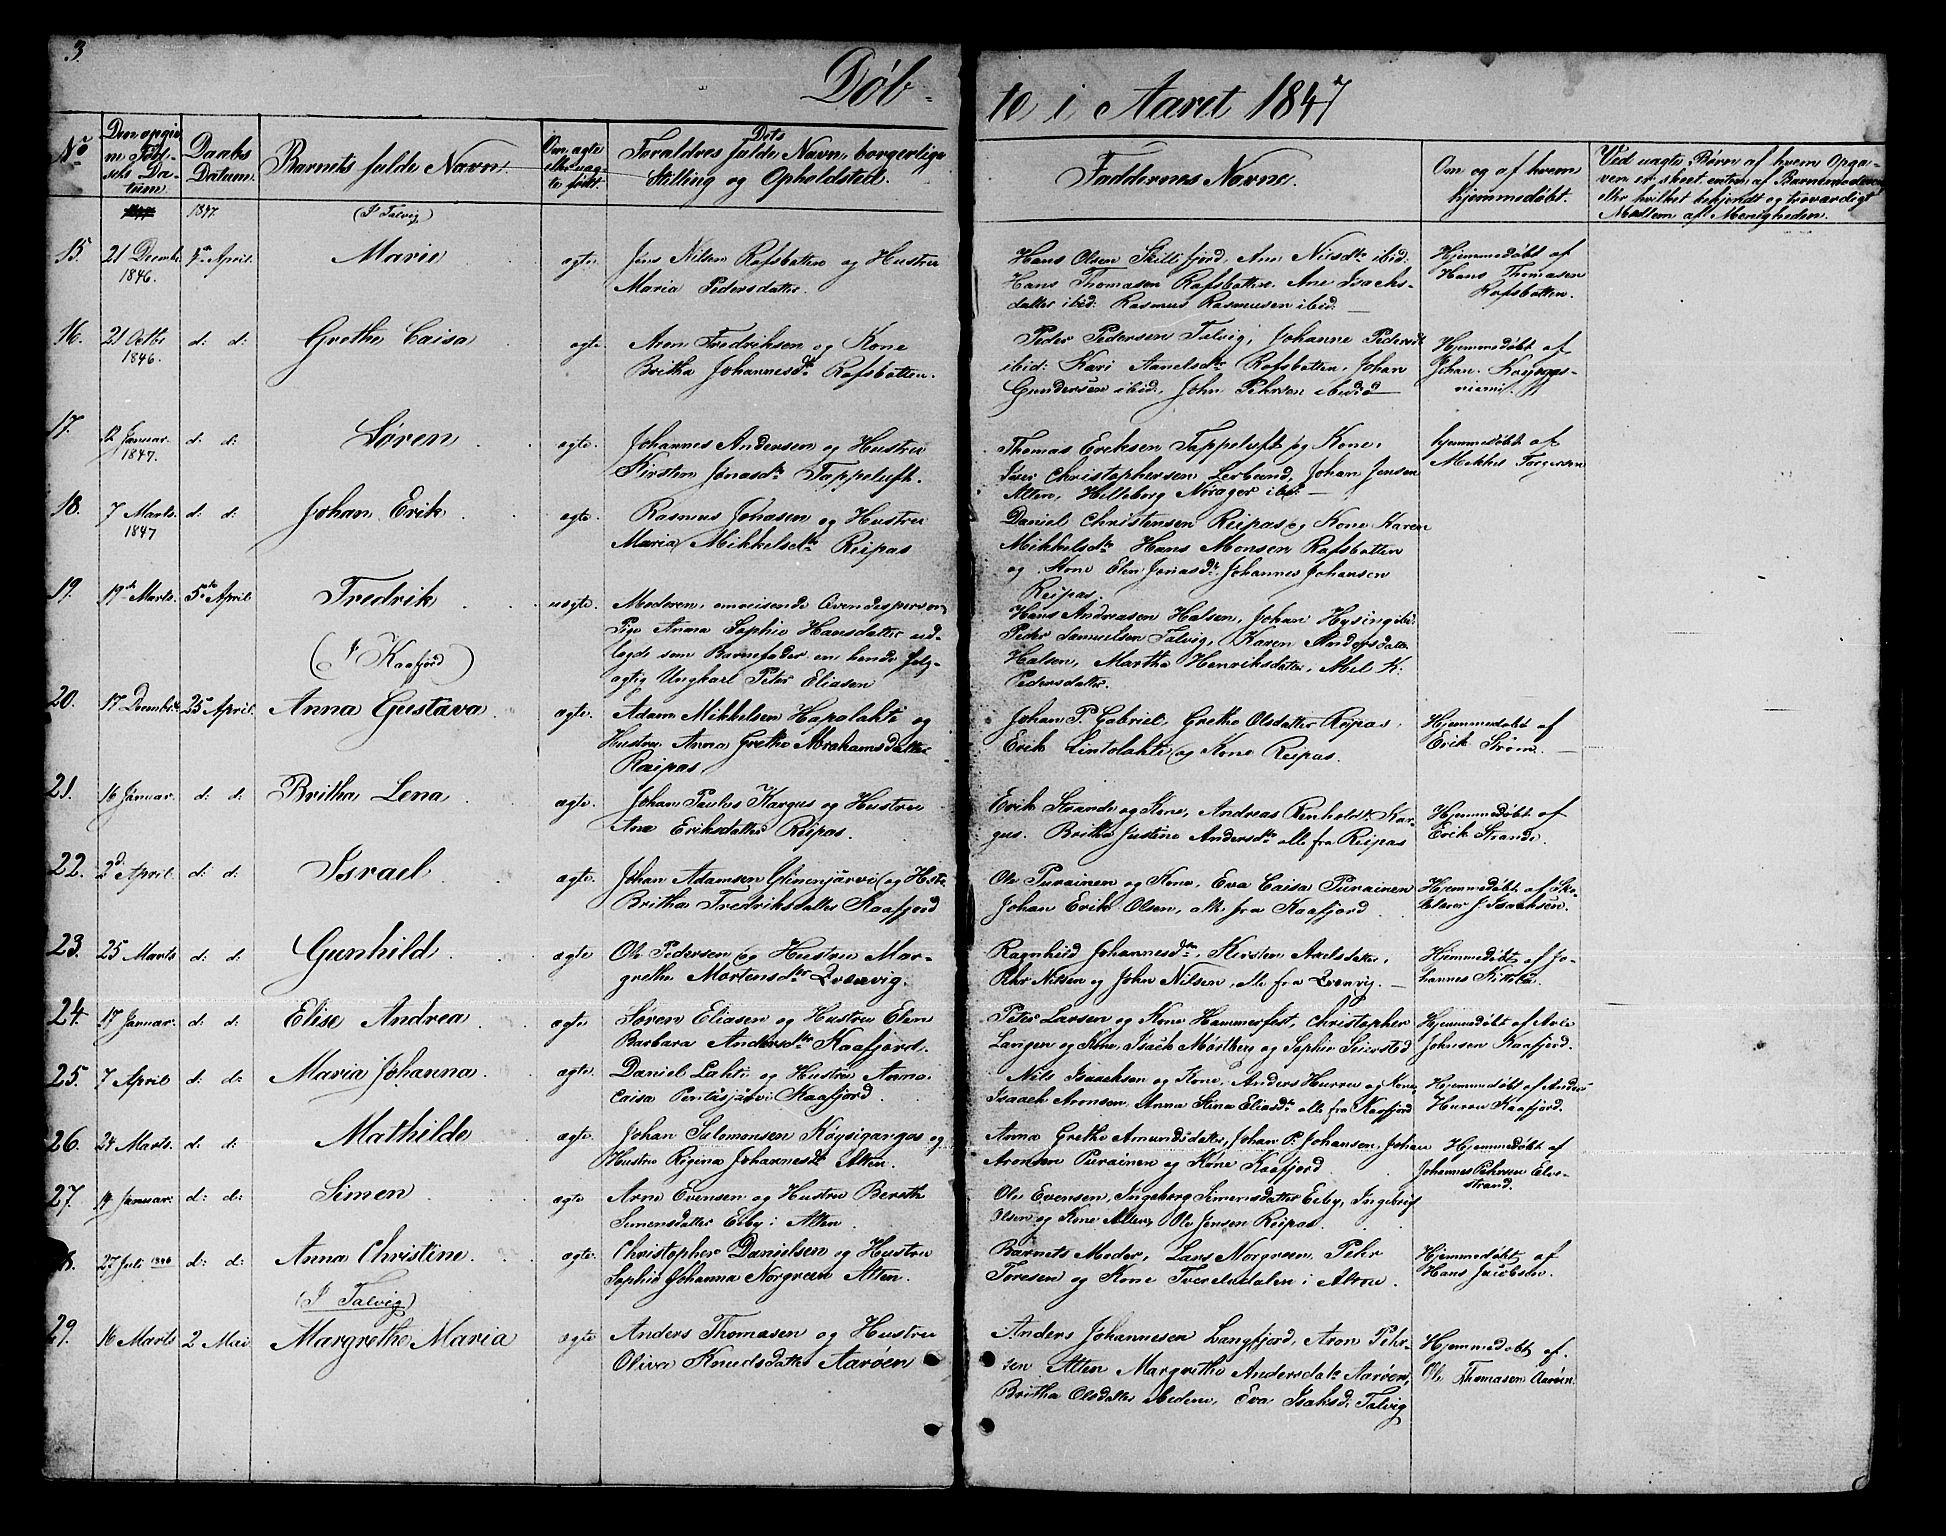 3.
Døb-
te i Aaret 1847
No
Den opgiv
ne Fød-
sels Da-
tum.
Daabs
Datum.
Barnets fulde Navn.
Om ægte
eller uæg-
te født.
Dets
Forældres fulde Navn, borgerlige
Stilling og Opholdsted.
Faddernes Navne.
Om og af hvem
hjemmedøbt.
Ved uægte Børn af hvem Opga-
ven er skeet, enten af Barnemoderen
eller hvilket bekjendt og troværdigt
Medlem af Menigheden.
1847.
(I Talvig)
15.
21 Decembr
1846.
April.
Marie
ægte.
Jens Nilsen Rafsbotten og Hustru
Maria Pedersdatter.
Hans Olsen Skillefjord, Ane Nilsdtr ibid:
Hans Thomasen Rafsbotten, Ane Isachs-
datter ibid: Rasmus Rasmusen ibid:
Hjemmedøbt af
Hans Thomasen
Rafsbotten.
16.
21 Octbr
1846.
d: d:
Grethe Caisa
ægte.
Aron Fredriksen og Kone
Britha Johannesdr Rafsbotten.
Peder Pedersen Talvig, Johanne Pedersdr
ibid: Kari Axelsdr Rafsbotten, Johan
Gundersen ibid:, John Pehrsen ibid:
Hjemmedøbt af
Johan
niemi.
17.
12 Januar.
1847.
d: d:
Søren
ægte.
Johannes Andersen og Hustru
Kirsten Jonasdr Tappeluft.
Thomas Eriksen Tappeluft og Kone.
Iver Christophersen Lerbund, Johan Jensen
Alten, Hilleborg Norager ibid:
hjemmedøbt af
Mikkel Torgersen
18.
7 Marts.
1847
d: d:
Johan Erik
ægte.
Rasmus Jonasen og Hustru
Maria Mikkelsdtr Reipas
Daniel Christensen Reipas og Kone Karen
Mikkelsdr Hans Monsen Rafsbotten
og Kone Elen Jonasdr Johannes Johansen
Reipas.
19.
19de Marts.
5te April
Fredrik
uægte.
Moderen, omreisende Qvendesperson
Pige Anna Sophie Hansdatter ud-
lagde som Barnefader en hende følg-
agtig Ungkarl Peter Eliasen
Hans Andreasen Halsen, Johan Hysing ibi:
Peder Samuelsen Talvig, Karen Andersdatter
Halsen, Marthe Henriksdatter, Mel K:
Pedersdatter.
(I Kaafjord)
20.
17 Decembr.
25 April.
Anna Gustava
ægte.
Adam Mikkelsen Hapalahti og
Hustru Anna Grethe Abrahamsdatter
Raipas.
Johan P. Gabriel, Grethe Olsdatter Reipas.
Erik Lintolahti og Kone Reipas.
Hjemmedøbt af
Erik Strøm.
21.
16 Januar.
d: d:
Britha Lena
ægte.
Johan Paulus Kargus og Hustru
Ane Eriksdatter Reipas.
Erik Strande og Kone, Andreas Renholdt Kar-
gus. Britha Justine Andersdtr alle fra Reipas
Hjemmedøbt af
Erik Strande.
22.
2d April.
d: d:
Israel
ægte.
Johan Adamsen Glinenjærvi og Hstr.
Britha Fredriksdatter Kaafjord
Ole Purainen og Kone, Eva Caisa Purainen
Johan Erik Olsen, alle fra Kaafjord
Hjemmedøbt af Sko-
lelærer J. Isachsen.
23.
25 Marts
d: d:
Gunhild
ægte
Ole Pedersen og Hustru Mar-
grethe Mortensdtr Qvænvig.
Ragnhild Johannesdr, Kirsten Axelsdatter,
Pehr Nilsen og John Nilsen, alle fra Qvænvig.
Hjemmedøbt af Jo-
hannes Kittila.
24.
17 Januar.
d: d:
Elise Andrea
ægte
Søren Eliasen og Hustru Elen
Barbara Andersdtr Kaafjord.
Peter Larsen og Kone Hammerfest, Christopher
Langer og Kone, Isach Mostberg og Sopher Seiersted
Hjemmedøbt af Avle
Johnsen Kaafjord.
25.
7 April
d: d:
Maria Johanna.
ægte.
Daniel Lahti og Hustru Anna
Caisa Pentæsjærvi Kaafjord.
Nils Isaachsen og Kone, Anders Hurru og Kone
Isaach Aronsen, Anna Stina Eliasdr alle fra Kaafjord
Hjemmedøbt af Anders
Hurru Kaafjord.
26.
24 Marts.
d: d:
Mathilde
ægte.
Johan Salomonsen Køysigangas og
Hustru Rigina Johannesdr Alten.
Anna Grethe Amundsdatter, Johan P. Johansen, Johan
Aronsen Purainen og Kone Kaafjord.
Hjemmedøbt af
Johannes Pehrsen Elve-
strand.
27.
14 Januar.
d: d:
Simen
ægte
Arne Evensen og Hustru Berith
Simensdatter Elby i Alten.
Ole Evensen, Ingeborg Simensdatter Elby, Ingebrigt
Olsen og Kone Alten, Ole Jensen Reipas.
8.
27 Juli 1846
d: d:
Anna Christine.
ægte.
Christopher Danielsen og Hustru
Sophie Johanna Norgreen Alten.
Barnets Moder, Lars Norgreen, Pehr
Toresen og Kone Tverelvdalen i Alten.
Hjemmedøbt af
Hans Jacobsen.
(I Talvig)
29.
16 Marts
2 Mai
Margrethe Maria
ægte
Anders Thomasen og Hustru
Oliva Knudsdatter Aarøen
Anders Johannesen Langfjord, Aron Pehr-
sen Alten Margrethe Andersdatr Aarøen,
Britha Olsdatter ibidem, Eva Isaksd. Talvig
Hjemmedøbt af
Ole Thomasen Aarøen.